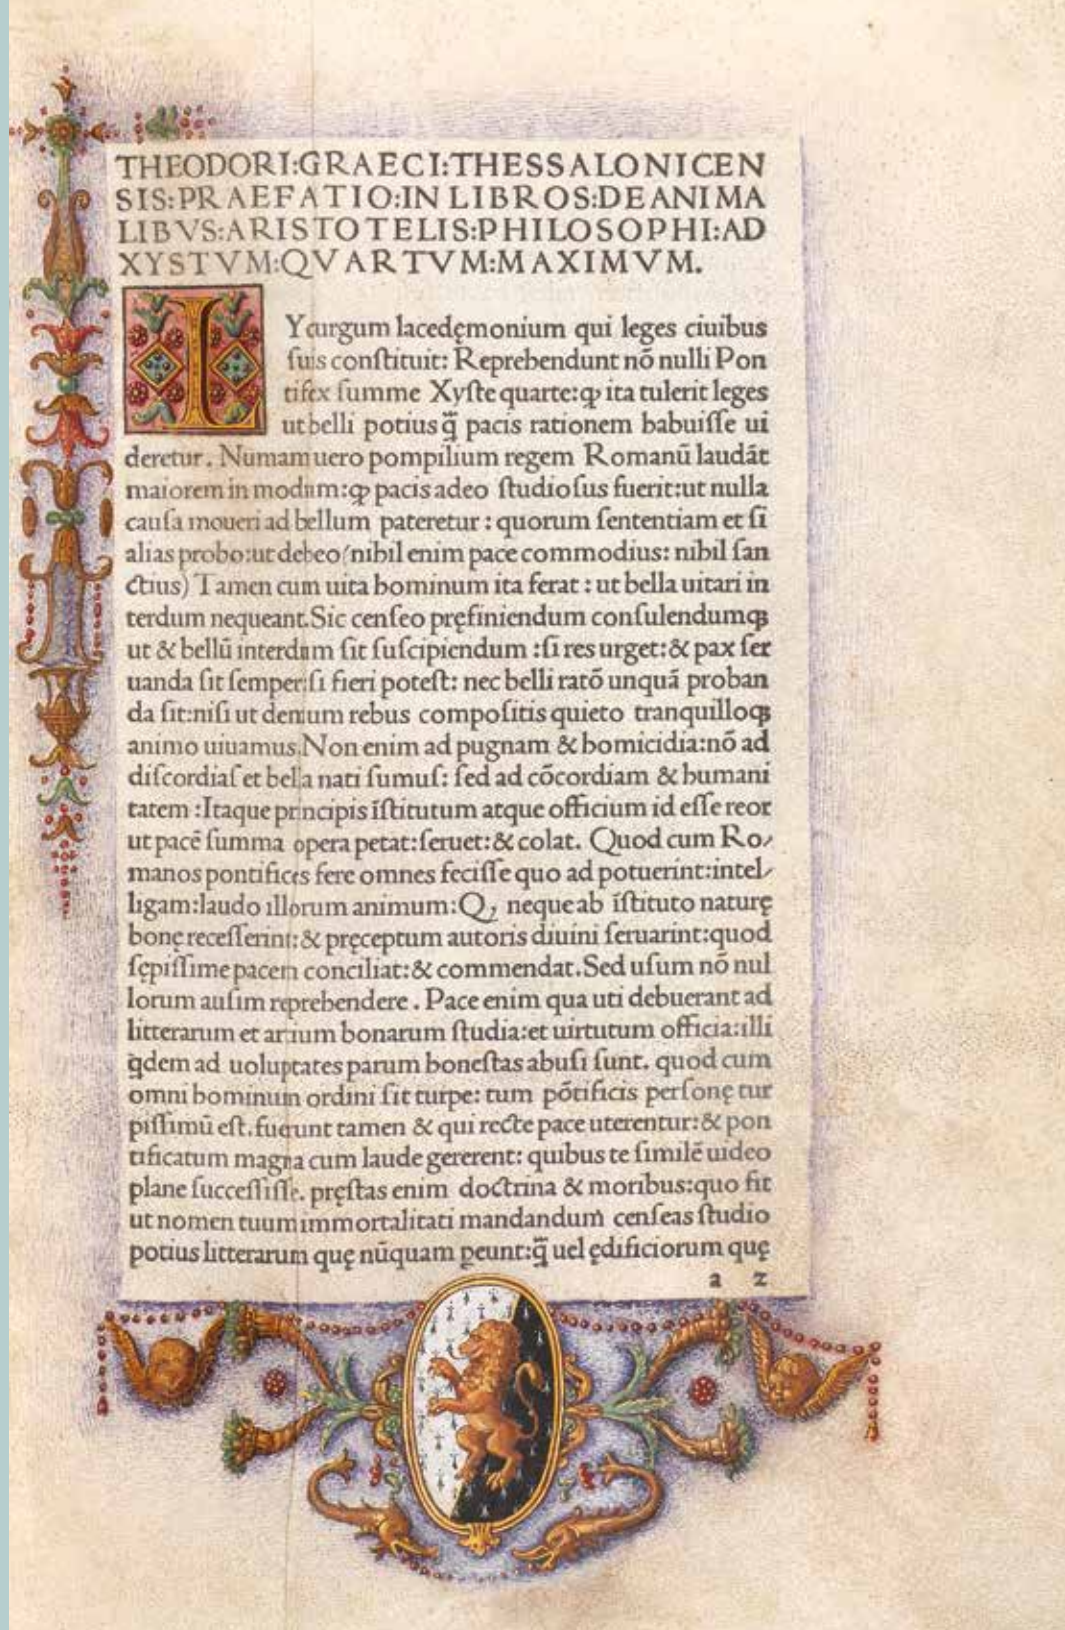 THEODORI:GRAECI:THESSALONICEN
SIS:PRAEFATIO:IN LIBROS:DE ANIMA
LIBVS:ARISTOTELIS:PHILOSOPHI:AD
XYSTVM:QVARTVM:MAXIMVM.
LYcurgum lacedęmonium qui leges ciuibus
ſuis conſtituit: Reprehendunt nō nulli Pon
tifex ſumme Xyſte quarte:ꝙ ita tulerit leges
ut belli potius q̃ pacis rationem habuiſſe ui
deretur. Numam uero pompilium regem Romanū laudāt
maiorem in modum:ꝙ pacis adeo ſtudioſus fuerit:ut nulla
cauſa moueri ad bellum pateretur: quorum ſententiam et ſi
alias probo:ut debeo(nihil enim pace commodius: nihil ſan
ctius) Tamen cum uita hominum ita ferat: ut bella uitari in
terdum nequeant.Sic cenſeo pręfiniendum conſulendumqꝫ
ut & bellū interdum ſit ſuſcipiendum :ſi res urget:& pax ſer
uanda ſit ſemper:ſi fieri poteſt: nec belli ratō unquā proban
da ſit:niſi ut demum rebus compoſitis quieto tranquilloqꝫ
animo uiuamus.Non enim ad pugnam & homicidia:nō ad
diſcordiaſ et bella nati ſumuſ: ſed ad cōcordiam & humani
tatem :Itaque principis īſtitutum atque officium id eſſe reor
ut pacē ſumma opera petat:ſeruet:& colat. Quod cum Ro/
manos pontifices fere omnes feciſſe quo ad potuerint:intel/
ligam:laudo illorum animum:Q, neque ab īſtituto naturę
bonę receſſerint:& pręceptum autoris diuini ſeruarint:quod
ſępiſſime pacem conciliat:& commendat.Sed uſum nō nul
lorum auſim reprehendere. Pace enim qua uti debuerant ad
litterarum et artium bonarum ſtudia:et uirtutum officia:illi
q̇dem ad uoluptates parum honeſtas abuſi ſunt. quod cum
omni hominum ordini ſit turpe: tum pōtificis perſonę tur
piſſimū eſt.fuerunt tamen & qui recte pace uterentur:& pon
tificatum magna cum laude gererent: quibus te ſimilē uideo
plane ſucceſſiſſe. pręſtas enim doctrina & moribus:quo fit
ut nomen tuum immortalitati mandandum cenſeas ſtudio
potius litterarum quę nūquam ꝑeunt:q̃ uel ędificiorum quę
a 2